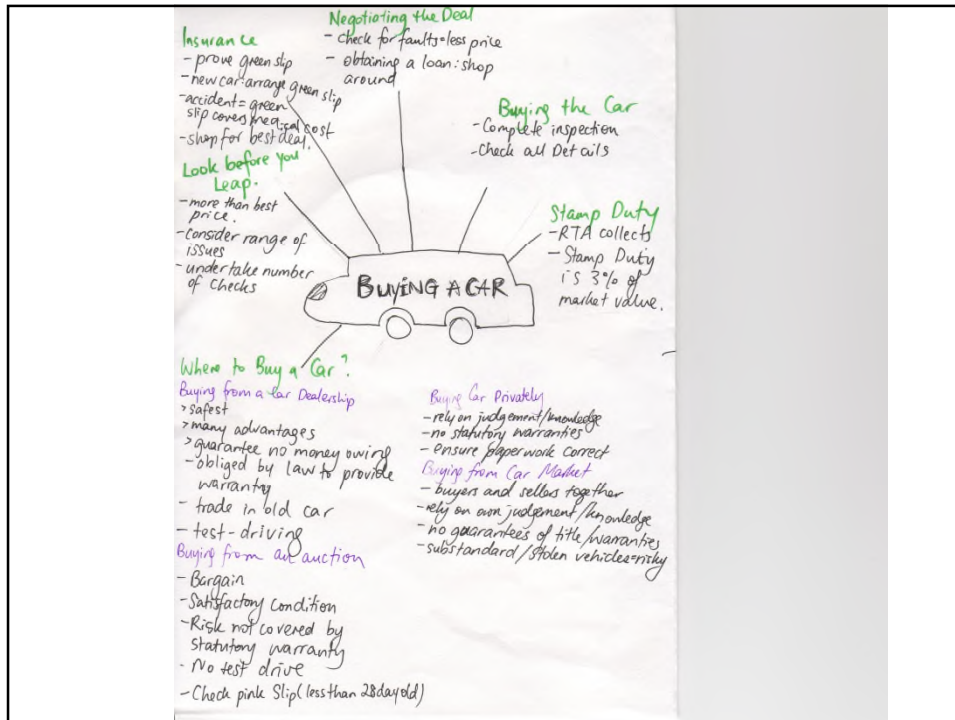 Negotiating the Deal
- check for faults=less price
- obtaining a loan: shop
around
Insurance
- prove green slip
- new car: arrange green slip
- accident = green
slip covers medical cost
- shop for best deal.
Buying the Car
- Complete inspection
- Check all Details
Look before you
Leap.
- more than best
price.
- consider range of
issues
- undertake number
of checks
Stamp Duty
- RTA collects
- Stamp Duty
is 3% of
market value.
BUYING A CAR
Where to Buy a Car?
Buying from a Car Dealership
> safest
> many advantages
> guarantee no money owing
- obliged by law to provide
warranty
- trade in old car
- test-driving
Buying from an auction
- Bargain
- Satisfactory condition
- Risk not covered by
statutory warranty
- No test drive
- Check pink Slip (less than 28 day old)
Buying Car Privately
- rely on judgement/knowledge
- no statutory warranties
- ensure paperwork correct
Buying from Car Market
- buyers and sellers together
- rely on own judgement/knowledge
- no guarantees of title/warranties
- substandard/stolen vehicles=risky